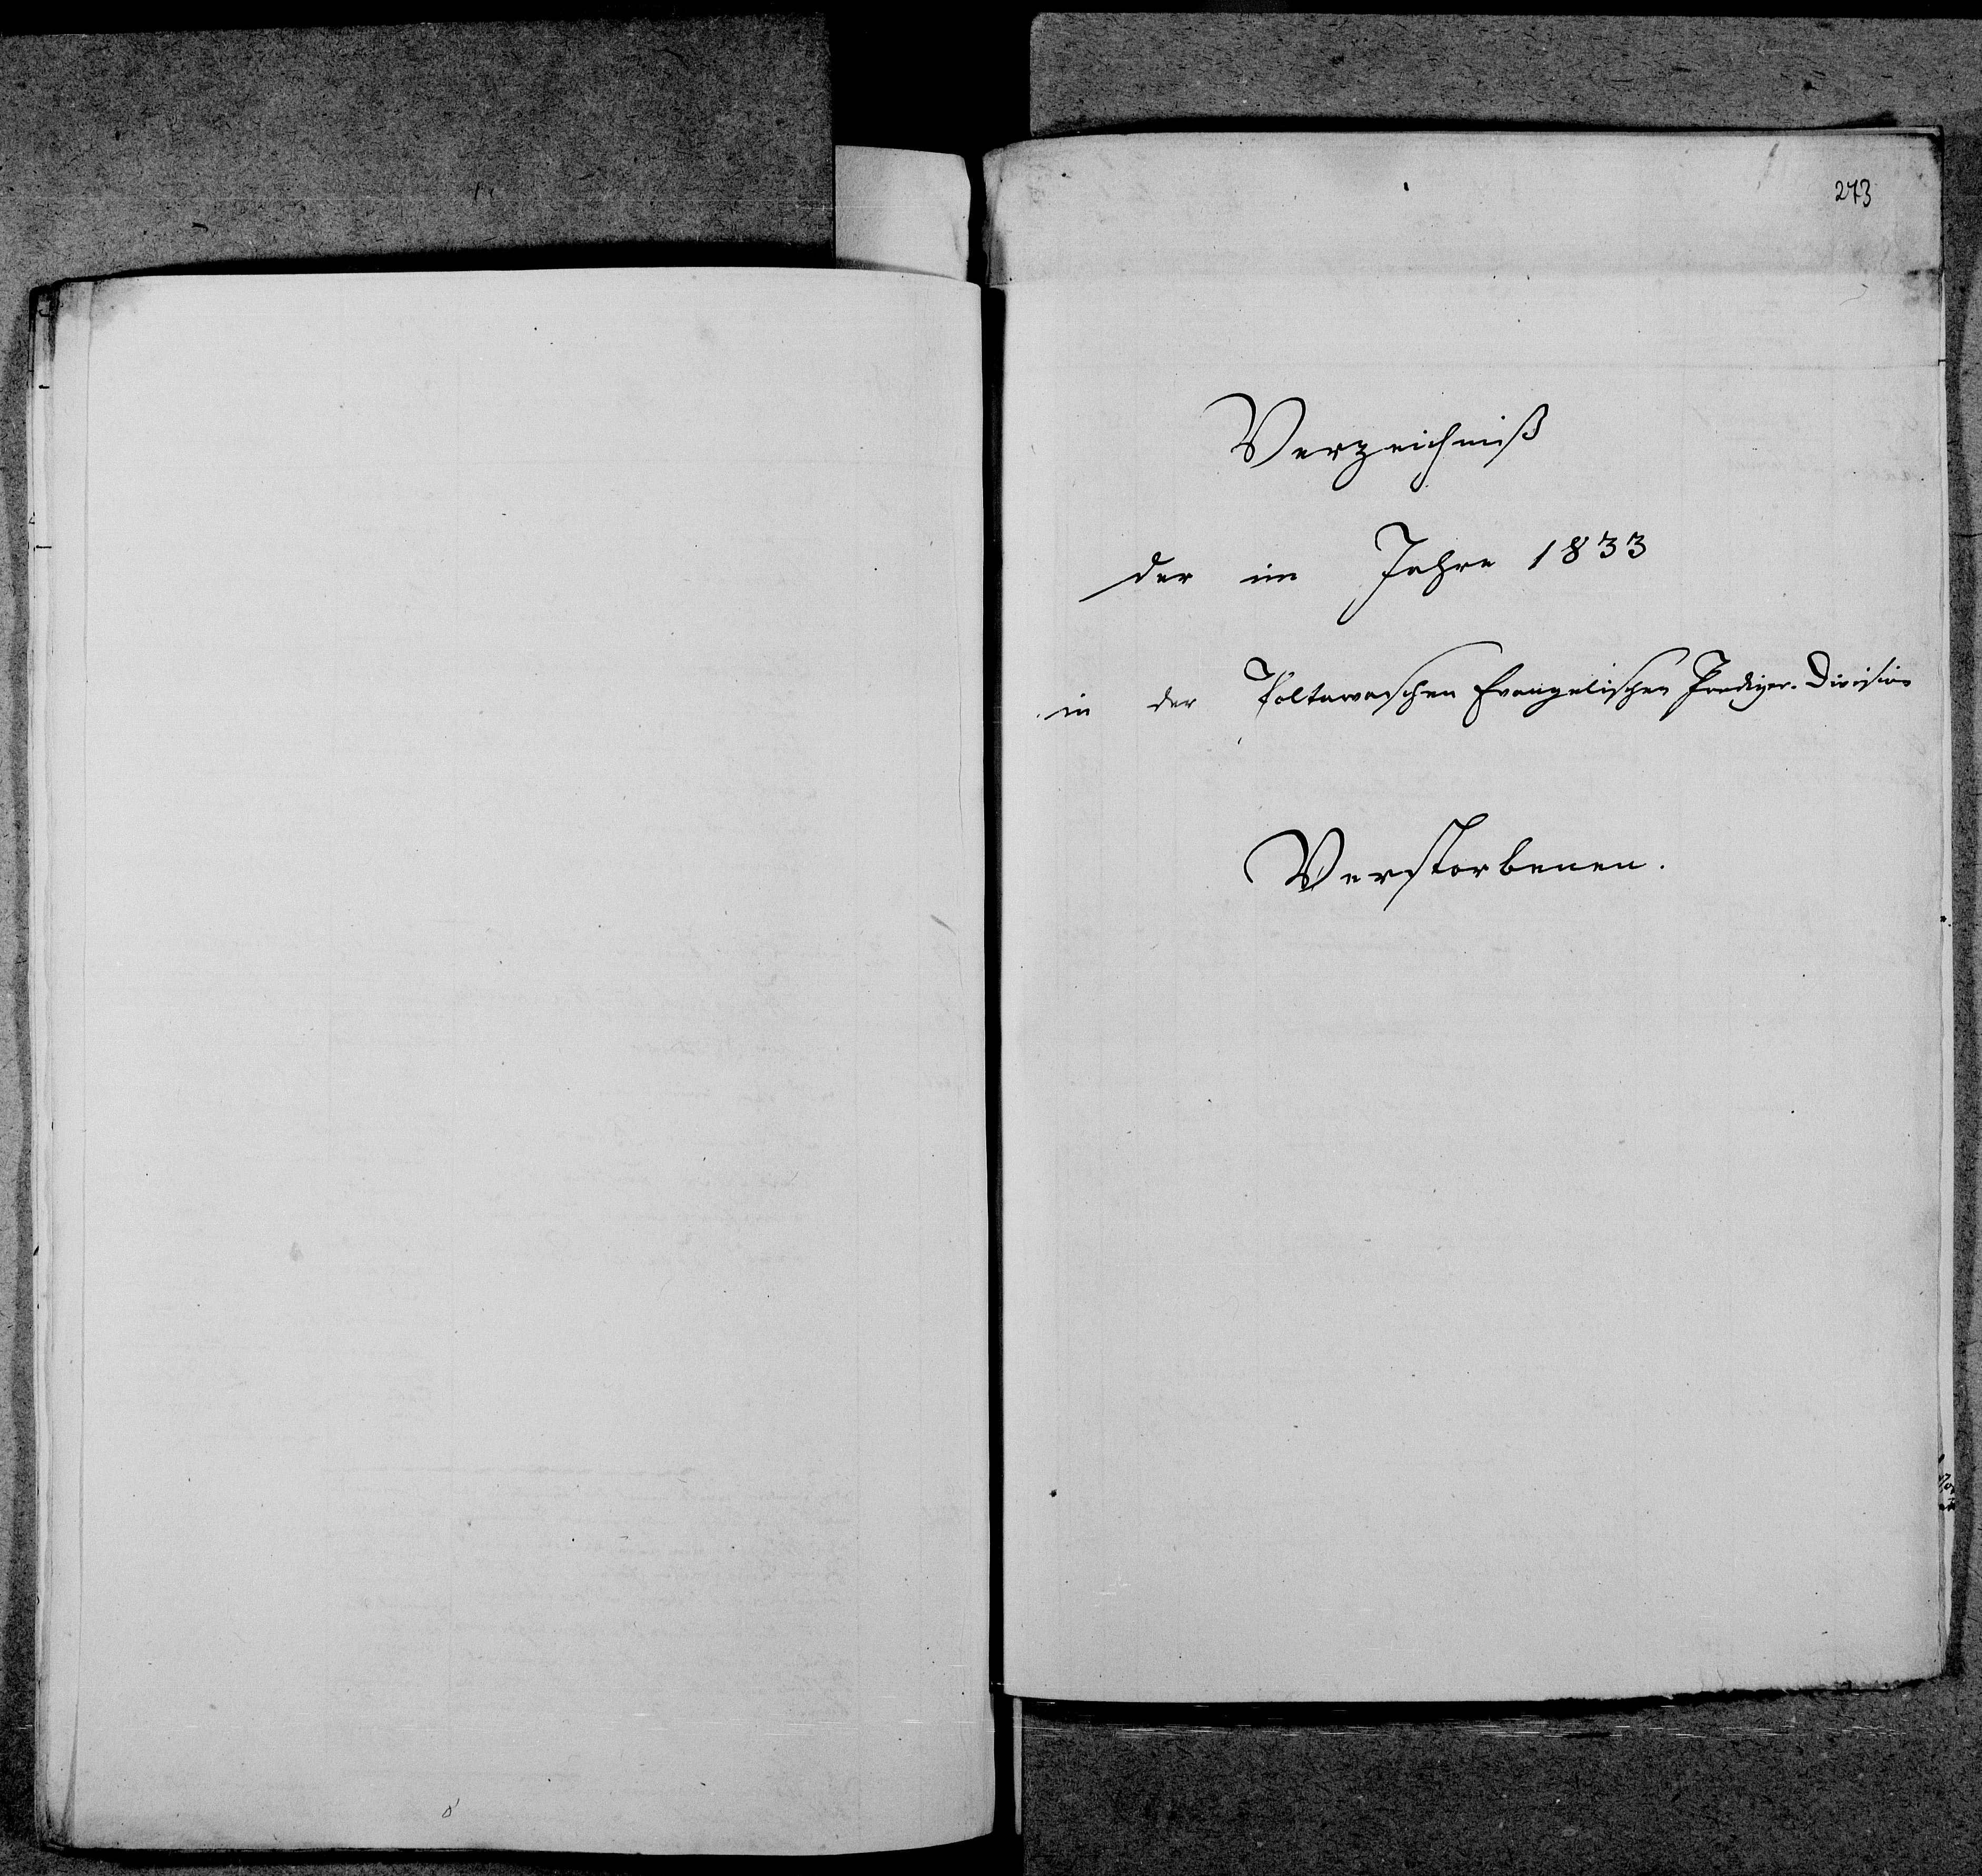 273
Verzeichniß
der im Jahre 1833
in der Poltawaschen Evangelischen Prediger-Division
Verstorbenen.